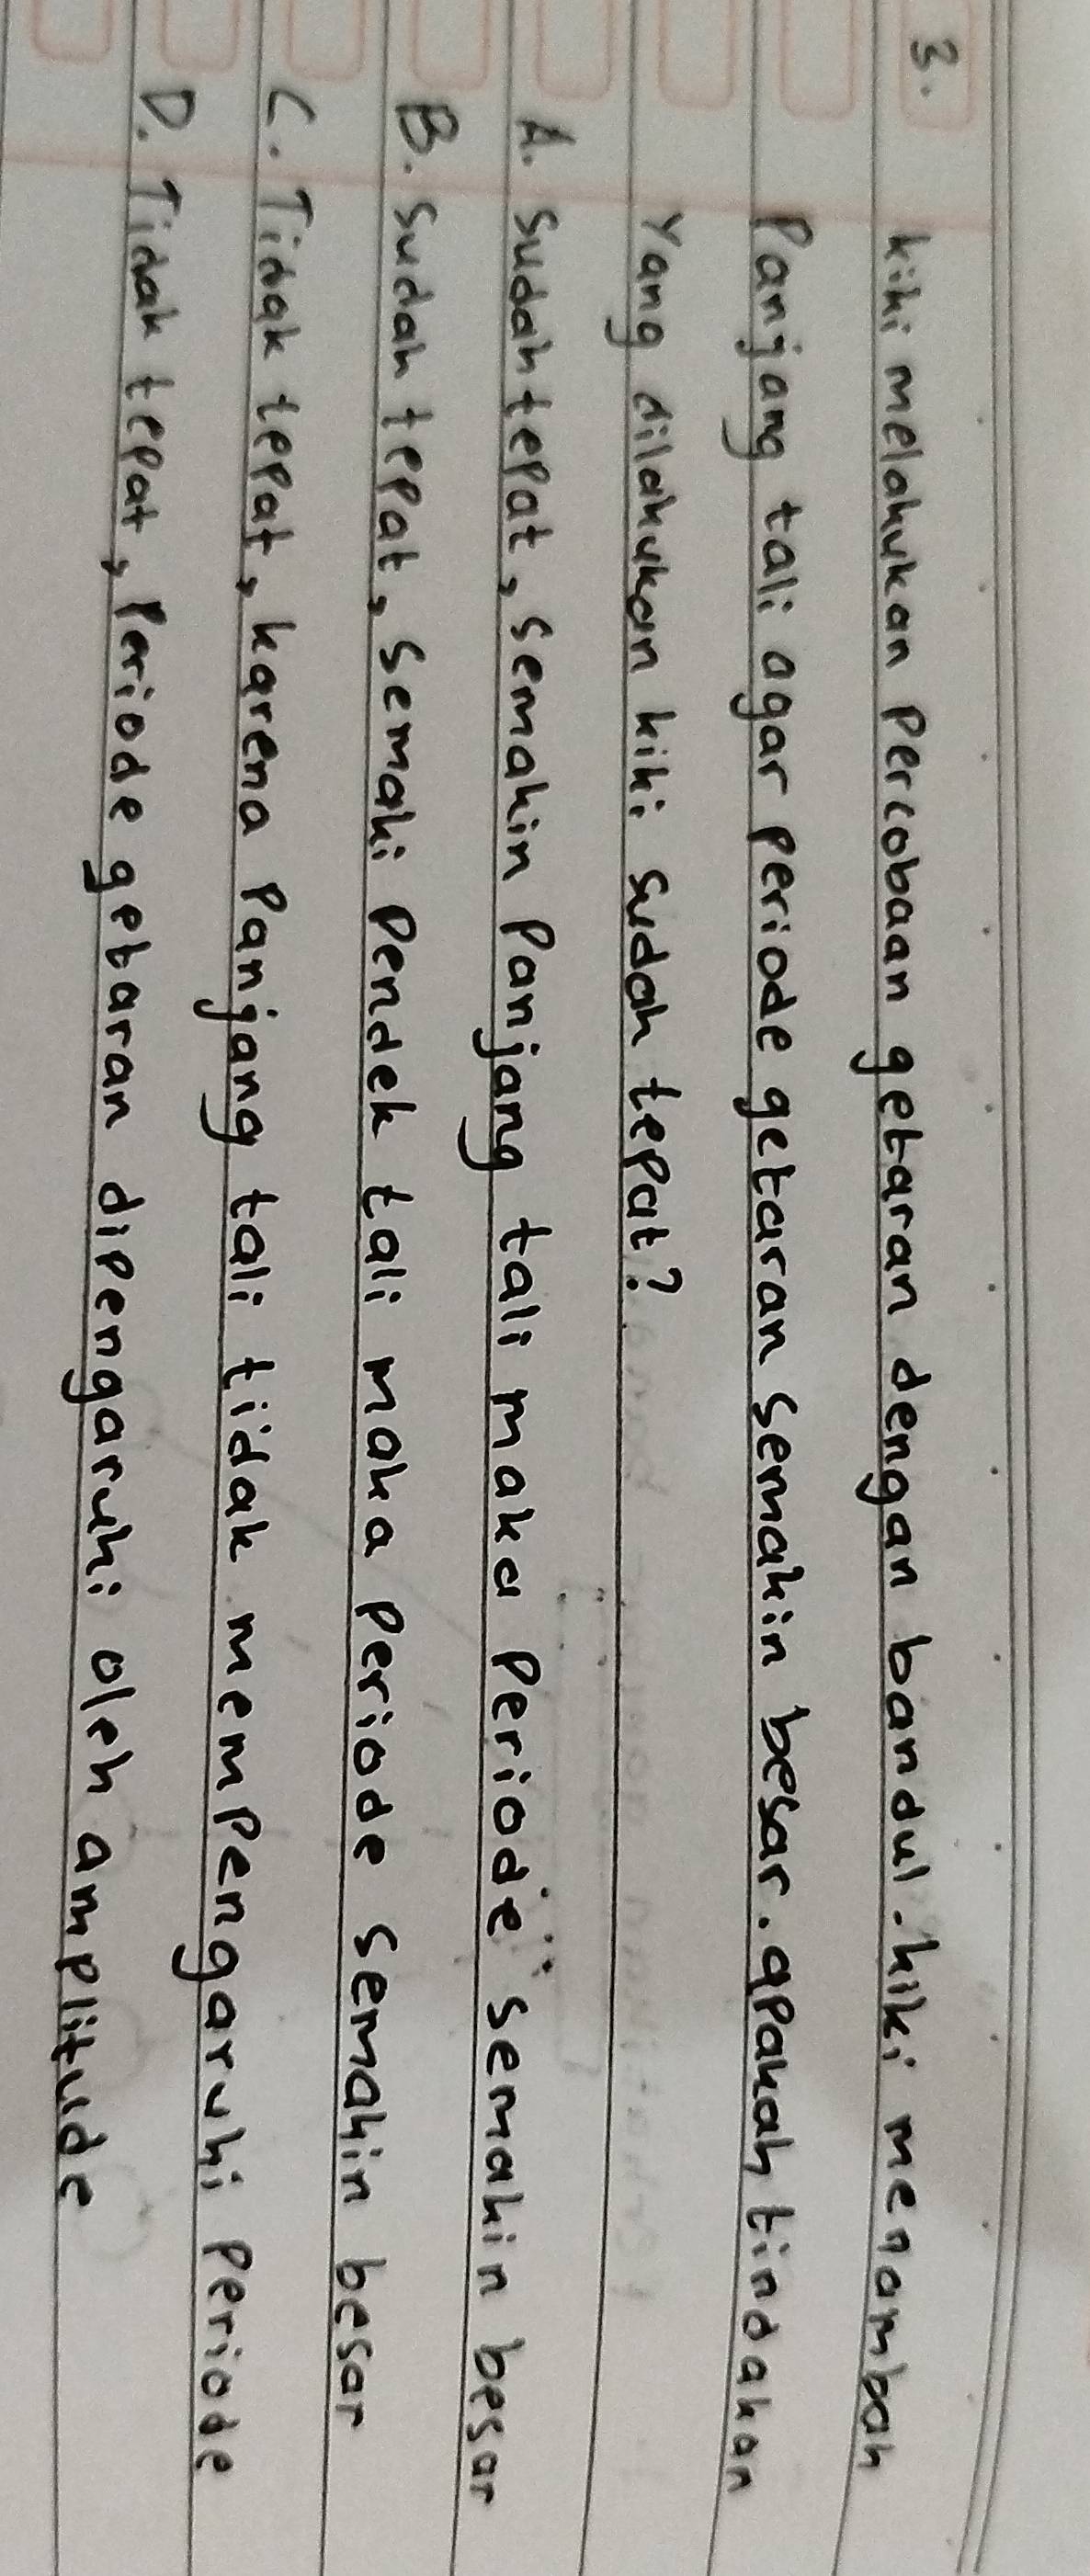 3. Kiki melakukan Percobaan getaran dengan bandul. Kiki menambah
Panjang tali agar Periode getaran semakin besar. apakah tindakan
Yang dilakukan kiki sudah tepat?
A. Sudah tepat, semakin Panjang tali maka Periode semakin besar
B. Sudah tepat, semaki Pendek tali maka Periode semakin besar
C. Tidak tepat, karena Panjang tali tidak mempengaruhi Periode
D. Tidak tepat, Periode gebaran dipengaruhi oleh amplitude